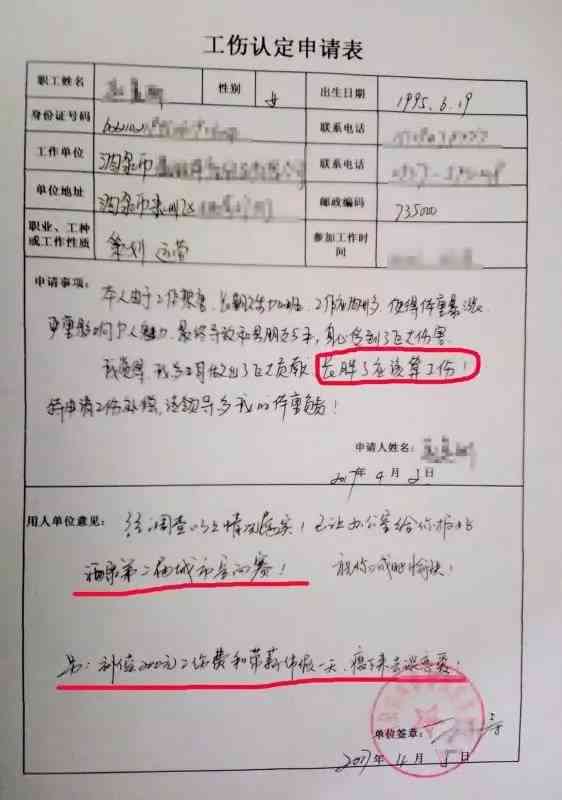 工伤认定申请表
职工姓名 性别 女 出生日期 1995.6.19
身份证号码 联系电话
工作单位 酒泉市 联系电话
单位地址 酒泉市肃州区 邮政编码 735000
职业、工种或工作性质 策划 运营 参加工作时间
申请事项:本人由于工作较累,长期久坐加班,工作应酬多,使得体重暴涨
严重影响个人魅力,最终导致和男朋友分手,身心受到了巨大伤害.
我觉得,我为公司做出了巨大贡献,长胖了应该算工伤!
特申请工伤补偿,请领导为我的体重负责!
申请人姓名:
2017年4月2日
用人单位意见:经调查以上情况属实!已让办公室给你报名
酒泉第二届城市定向赛! 祝你减肥愉快!
另:补偿200元工伤费和带薪休假一天,瘦下来去谈恋爱!
单位签章:
2017年4月5日